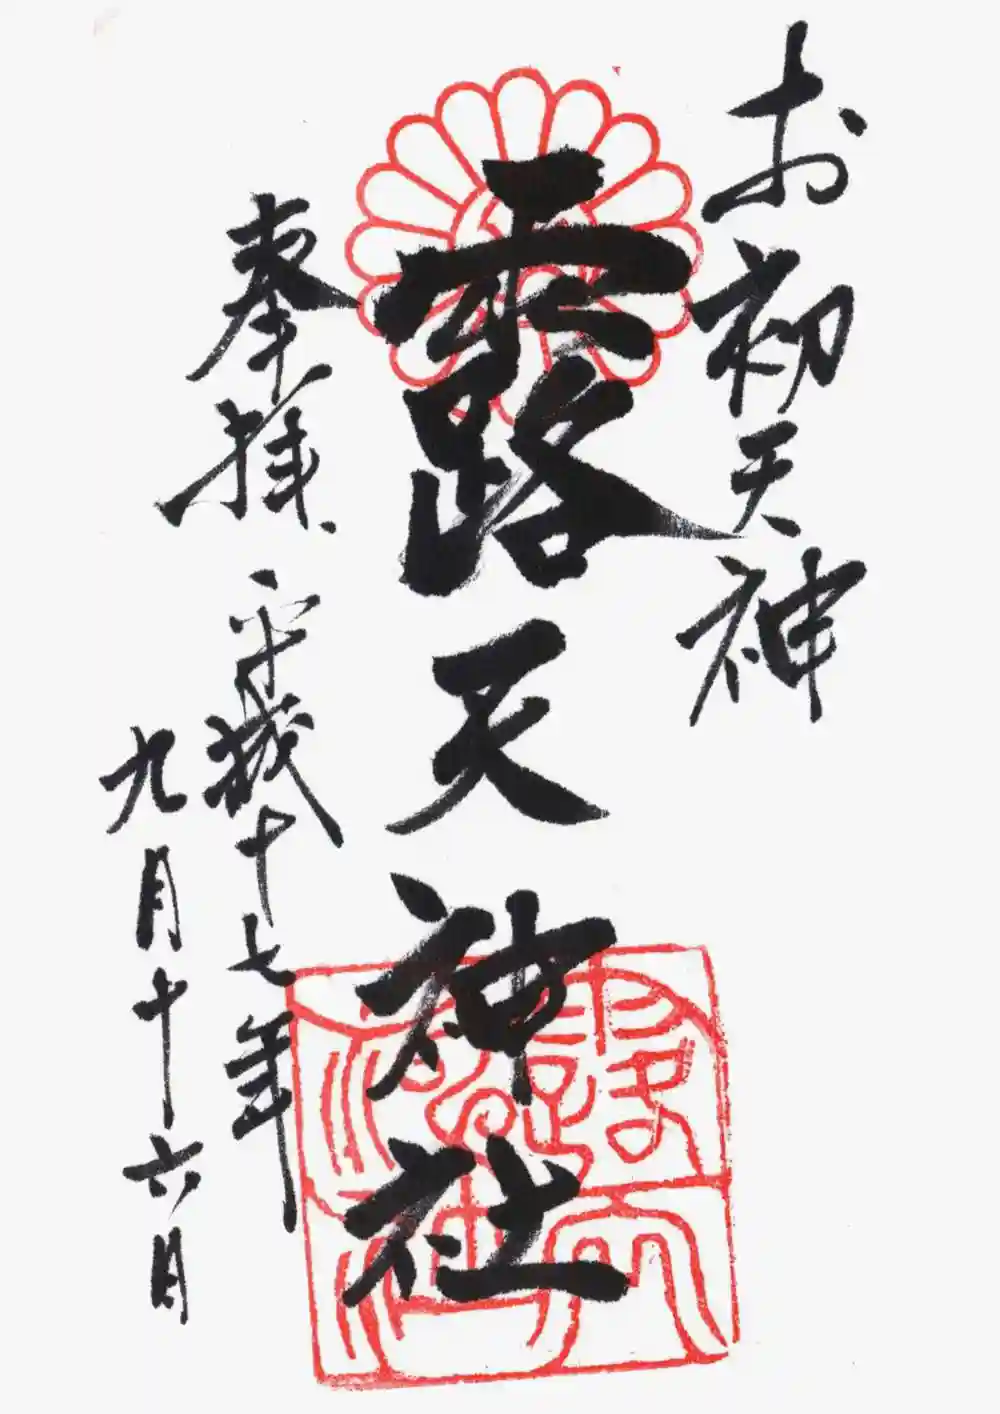 お初天神
露天神社
奉拝 平成十七年
九月十六日
露天神社